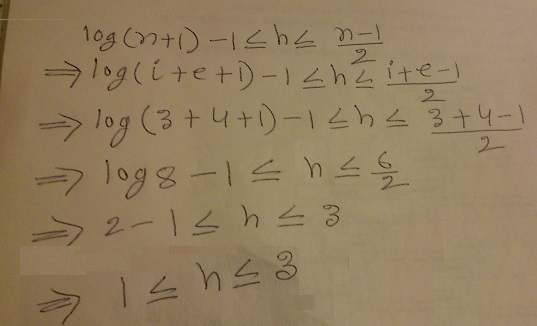 log(n+1) -1 ≤ h ≤ n-1/2
⇒ log(i+e+1) -1 ≤ h ≤ i+e-1/2
⇒ log(3+4+1) -1 ≤ h ≤ 3+4-1/2
⇒ log8 -1 ≤ h ≤ 6/2
⇒ 2-1 ≤ h ≤ 3
⇒ 1 ≤ h ≤ 3